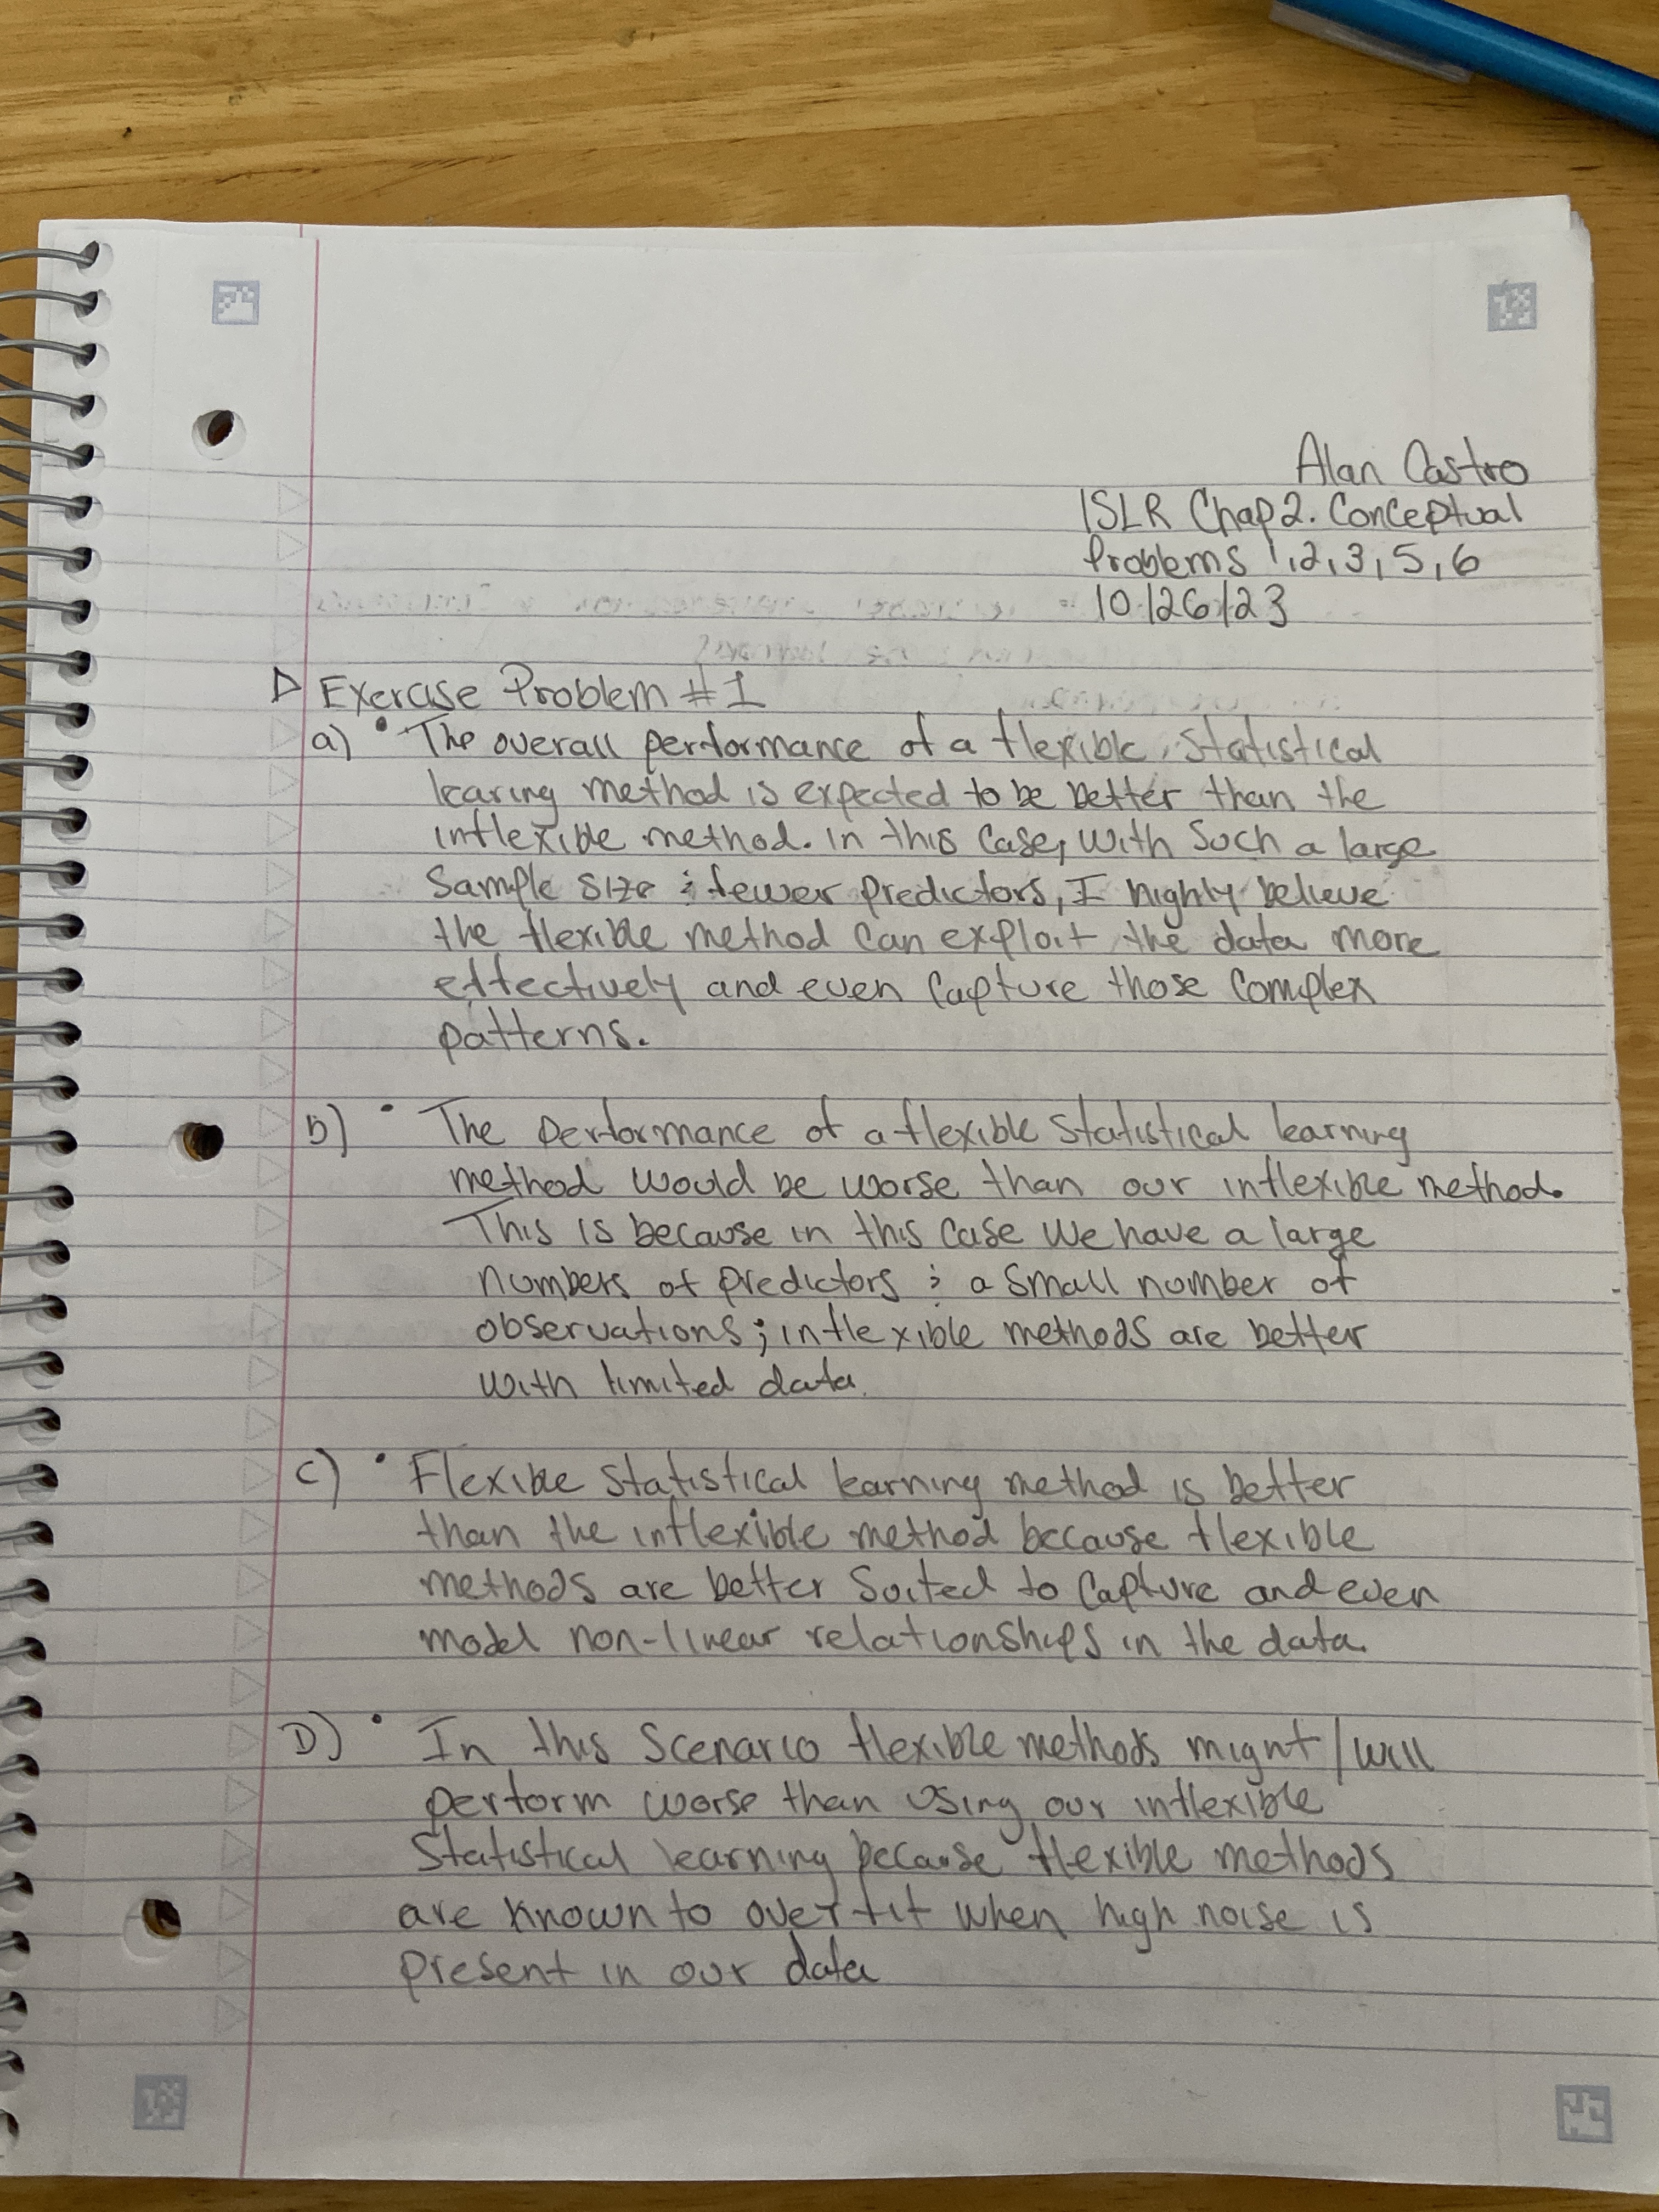 Alan Castro
ISLR Chap2. Conceptual
Problems 1,2,3,5,6
10/26/23
Exercise Problem #1
a) • The overall performance of a flexible statistical
learing method is expected to be better than the
inflexible method. in this Case, with Such a large
Sample Size & fewer predictors, I highly believe
the flexible method can exploit the data more
effectively and even capture those complex
patterns.
b) • The performance of a flexible Statistical learning
method would be worse than our inflexible method.
This is because in this case we have a large
numbers of predictors & a small number of
observations; inflexible methods are better
with limited data.
C) • Flexible Statistical learning method is better
than the inflexible method because flexible
methods are better Suited to Capture and even
model non-linear relationships in the data.
D) • In this Scenario flexible methods might/will
perform worse than using our inflexible
Statistical learning because flexible methods
are known to overfit when high noise is
present in our data